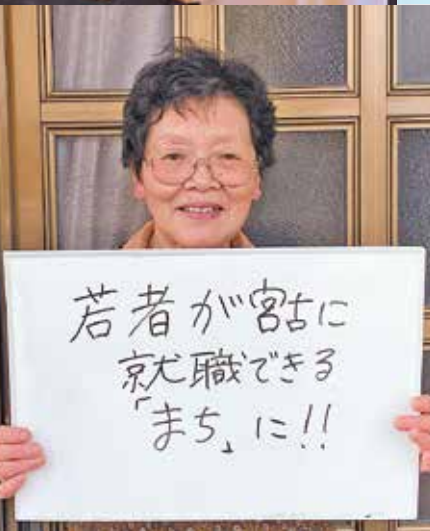 若者が宮古に
就職できる
「まち」に!!